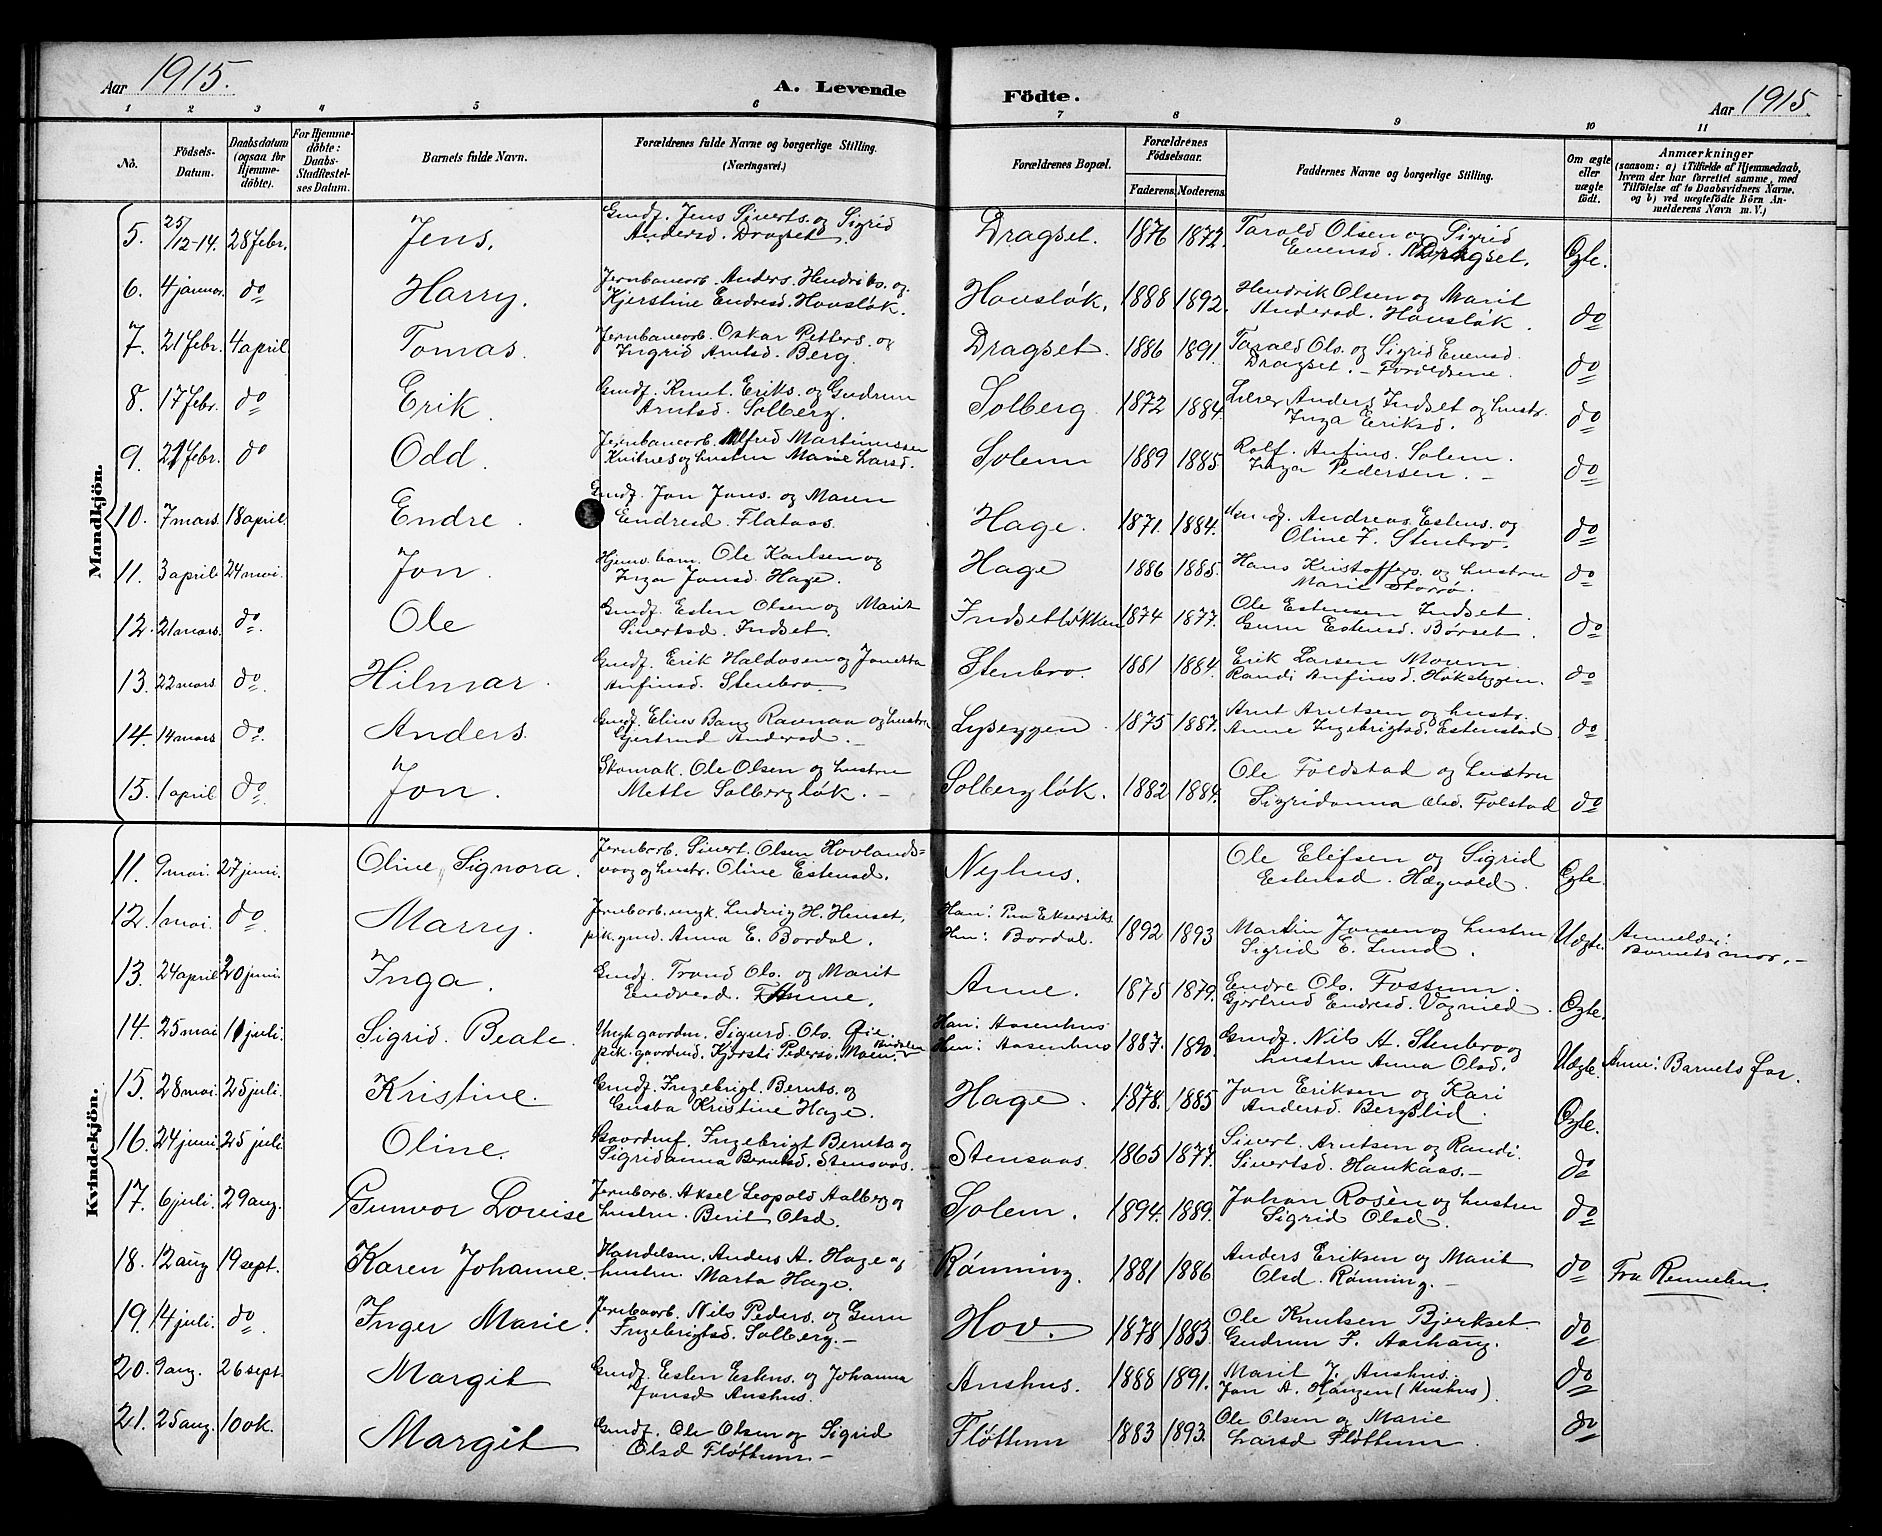 Aar 1915.
A. Levende
Födte.
Aar 1915.
1 2 3 4 5 6 7 8 9 10 11
No.
Födsels-Datum.
Daabsdatum (ogsaa for Hjemmedöbte).
For Hjemmedöbte: Daabs-Stadfæstelses Datum.
Barnets fulde Navn.
Forældrenes fulde Navne og borgerlige Stilling. (Næringsvei.)
Forældrenes Bopæl.
Forældrenes Födselsaar.
Faderens. Moderens.
Faddernes Navne og borgerlige Stilling.
Om ægte eller uægte födt.
Anmærkninger
(saasom: a) i Tilfælde af Hjemmedaab, hvem der har forrettet samme, med Tilföielse af to Daabsvidners Navne. og b) ved uægtefödte Börn Anmelderens Navn m. V.)
Mandkjön.
5. 25/12-14. 28 febr. Jens. Gmdf. Jens Siverts. og Sigrid Andersd. Dragset. Dragset. 1876 1872. Tarald Olsen og Sigrid Evensd. Dragset. Egte.
6. 4 januar. do Harry. Jernbanearb. Anders Hendriks. og Kjerstine Endresd. Hovsløk. Hovsløk. 1888 1892. Hendrik Olsen og Marit Andersd. Hovsløk. do
7. 21 febr. 4 april Tomas. Jernbanearb. Oskar Petters. og Ingrid Arntsd. Berg. Dragset. 1886 1891. Tarald Ols. og Sigrid Evensd. Dragset. – Forældrene. do
8. 17 febr. do Erik. Gmdf. Knut Eriks. og Gudrun Arntsd. Solberg. Solberg 1872 1884. Lærer Anders Indset og hustr. Inga Eriksd. do
9. 21 febr. do Odd. Jernbanearb. Alfred Martinussen Kvitnes og hustru Marie Larsd. Solem 1889 1885. Rolf Anfins. Solem. Inga Pedersen. – do
10. 7 mars. 18 april. Endre. Gmdf. Jon Jons. og Maren Endresd. Flataas. Hage. 1871. 1884. Gmdf. Andreas Estens. og Oline J. Stenbro. do
11. 3 april 24 mai. Jon. Ole Karlsen og Inga Jonsd. Hage. Hage 1886 1885. Hans Kristoffers. og hustru Marie Storrø. do
12. 21 mars. do. Ole Gmdf. Esten Olsen og Marit Sivertsd. Indset. Indsetløkken 1874 1877. Ole Estensen Indset. Guru Estensd. Børset. do
13. 22 mars do. Hilmar. Gmdf. Erik Haldosen og Jonetta Anfinsd. Stenbro. Stenbro. 1881 1884. Erik Larsen Moum. Randi Anfinsd. Høkseggen. do
14. 14 mars do. Anders. Gmdf. Elius Bang Ravnaa og hustru Gjertrud Andersd. – Lyseggen. 1875 1887. Arnt Arntsen og hustr. Anne Ingebrigtsd. Estenstad do
15. 1 april do. Jon. Skomak. Ole Olsen og hustru Mette Solbergløk. – Solbergløk. 1882 1884. Ole Foldstad og hustru Sigridanna Olsd. Folstad do
Kvindekjön.
11. 9 mai. 27 juni. Oline Signora. Jernbarb. Sivert Olsen Hovlandsvoog og hustr. Oline Estensd. Nyhus. Ole Elefsen og Sigrid Estensd. Hægvold. Egte.
12. 1 mai. do Marry. Jernbarb. ungk. Ludvig H. Henset, pik. gmd. Anna E. Bordal. Han: Hun: Bordal. 1892 1893 Martin Jonsen og hustru Sigrid E. Lund. Uegte. Anmelder: Barnets mor. –
13. 24 april 20 juni. Inga. Gmdf. Trond Ols. og Marit Endresd. Anne. Anne. 1875 1879. Endre Ols. Fossum. Gjertrud Endresd. Vagnild. Egte.
14. 25 mai 11 juli. Sigrid Beate. Ungk. gaardm. Sigurd Ols. Øie. pik. gaardmd. Kjersti Pedersd. Moen, Budalen Han: Aasenhus Hun: Aasenhus 1887. 1890. Gmdf. Nils A. Stenbro og hustru Anna Olsd. Uegte. Anm: Barnets far.
15. 28 mai. 25 juli. Kristine. Gmdf. Ingebrigt Bernts. og Gusta Kristine Hage. Hage. 1878. 1885 Jon Eriksen og Kari Andersd. Bergslid. Egte.
16. 24 juni. 25 juli. Oline. Gaardmf. Ingebrigt Bernts og Sigridanna Berntsd. Stensaas. Stensaas. 1865 1877. Sivert Arntsen og Randi Sivertsd. Haukaas. – do
17. 6 juli. 29 aug. Gunvor Lovise Jernbarb. Aksel Leopold Aalberg og hustru Berit Olsd. Solem. 1894. 1889. Johan Rosèn og hustru Sigrid Olsd. do
18. 12 aug 19 sept. Karen Johanne. Handelsm. Anders A. Hage og hustru Marta Hage. Rønning. 1881 1886 Anders Eriksen og Marit Olsd. Rønning. – do Fra Rennebu.
19. 14 juli. do. Inger Marie. Jernbaarb. Nils Peders. og Guru Ingebrigtsd. Solberg. – Hov. 1878 1883. Ole Knutsen Bjerkset Gudrun J. Aarhaug. do
20. 9 aug. 26 sept. Margit Gmdf. Esten Estens. og Johanna Jonsd. Aushus. Aushus. 1888 1891. Marit J. Aushus. Jon A. Haugen (Aushus). do
21. 25 aug. 10 ok. Margit Gmdf. Ole Olsen og Sigrid Olsd Fløttum – Fløttum 1883 1893. Ole Olsen og Marie Larsd Fløttum. do